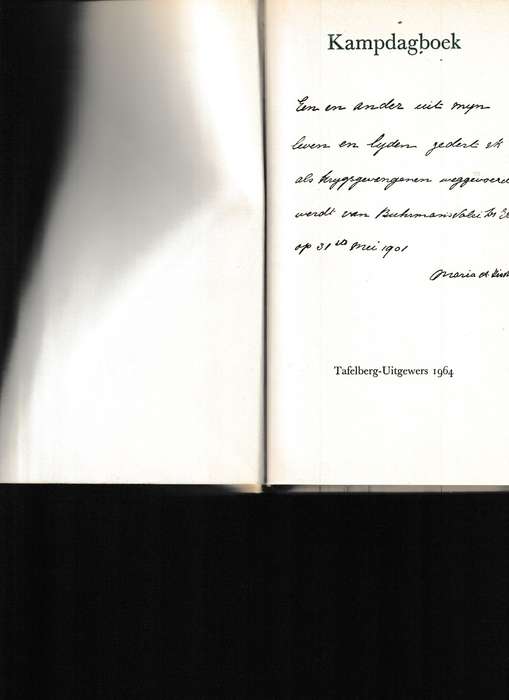 Kampdagboek
Een en ander uit mijn
leven en lijden zedert ik
als krijgsgevangenen weggevoerd
werdt van Buhrmansvalei
op 31 sts Mei 1901
Maria
Tafelberg-Uitgewers 1964